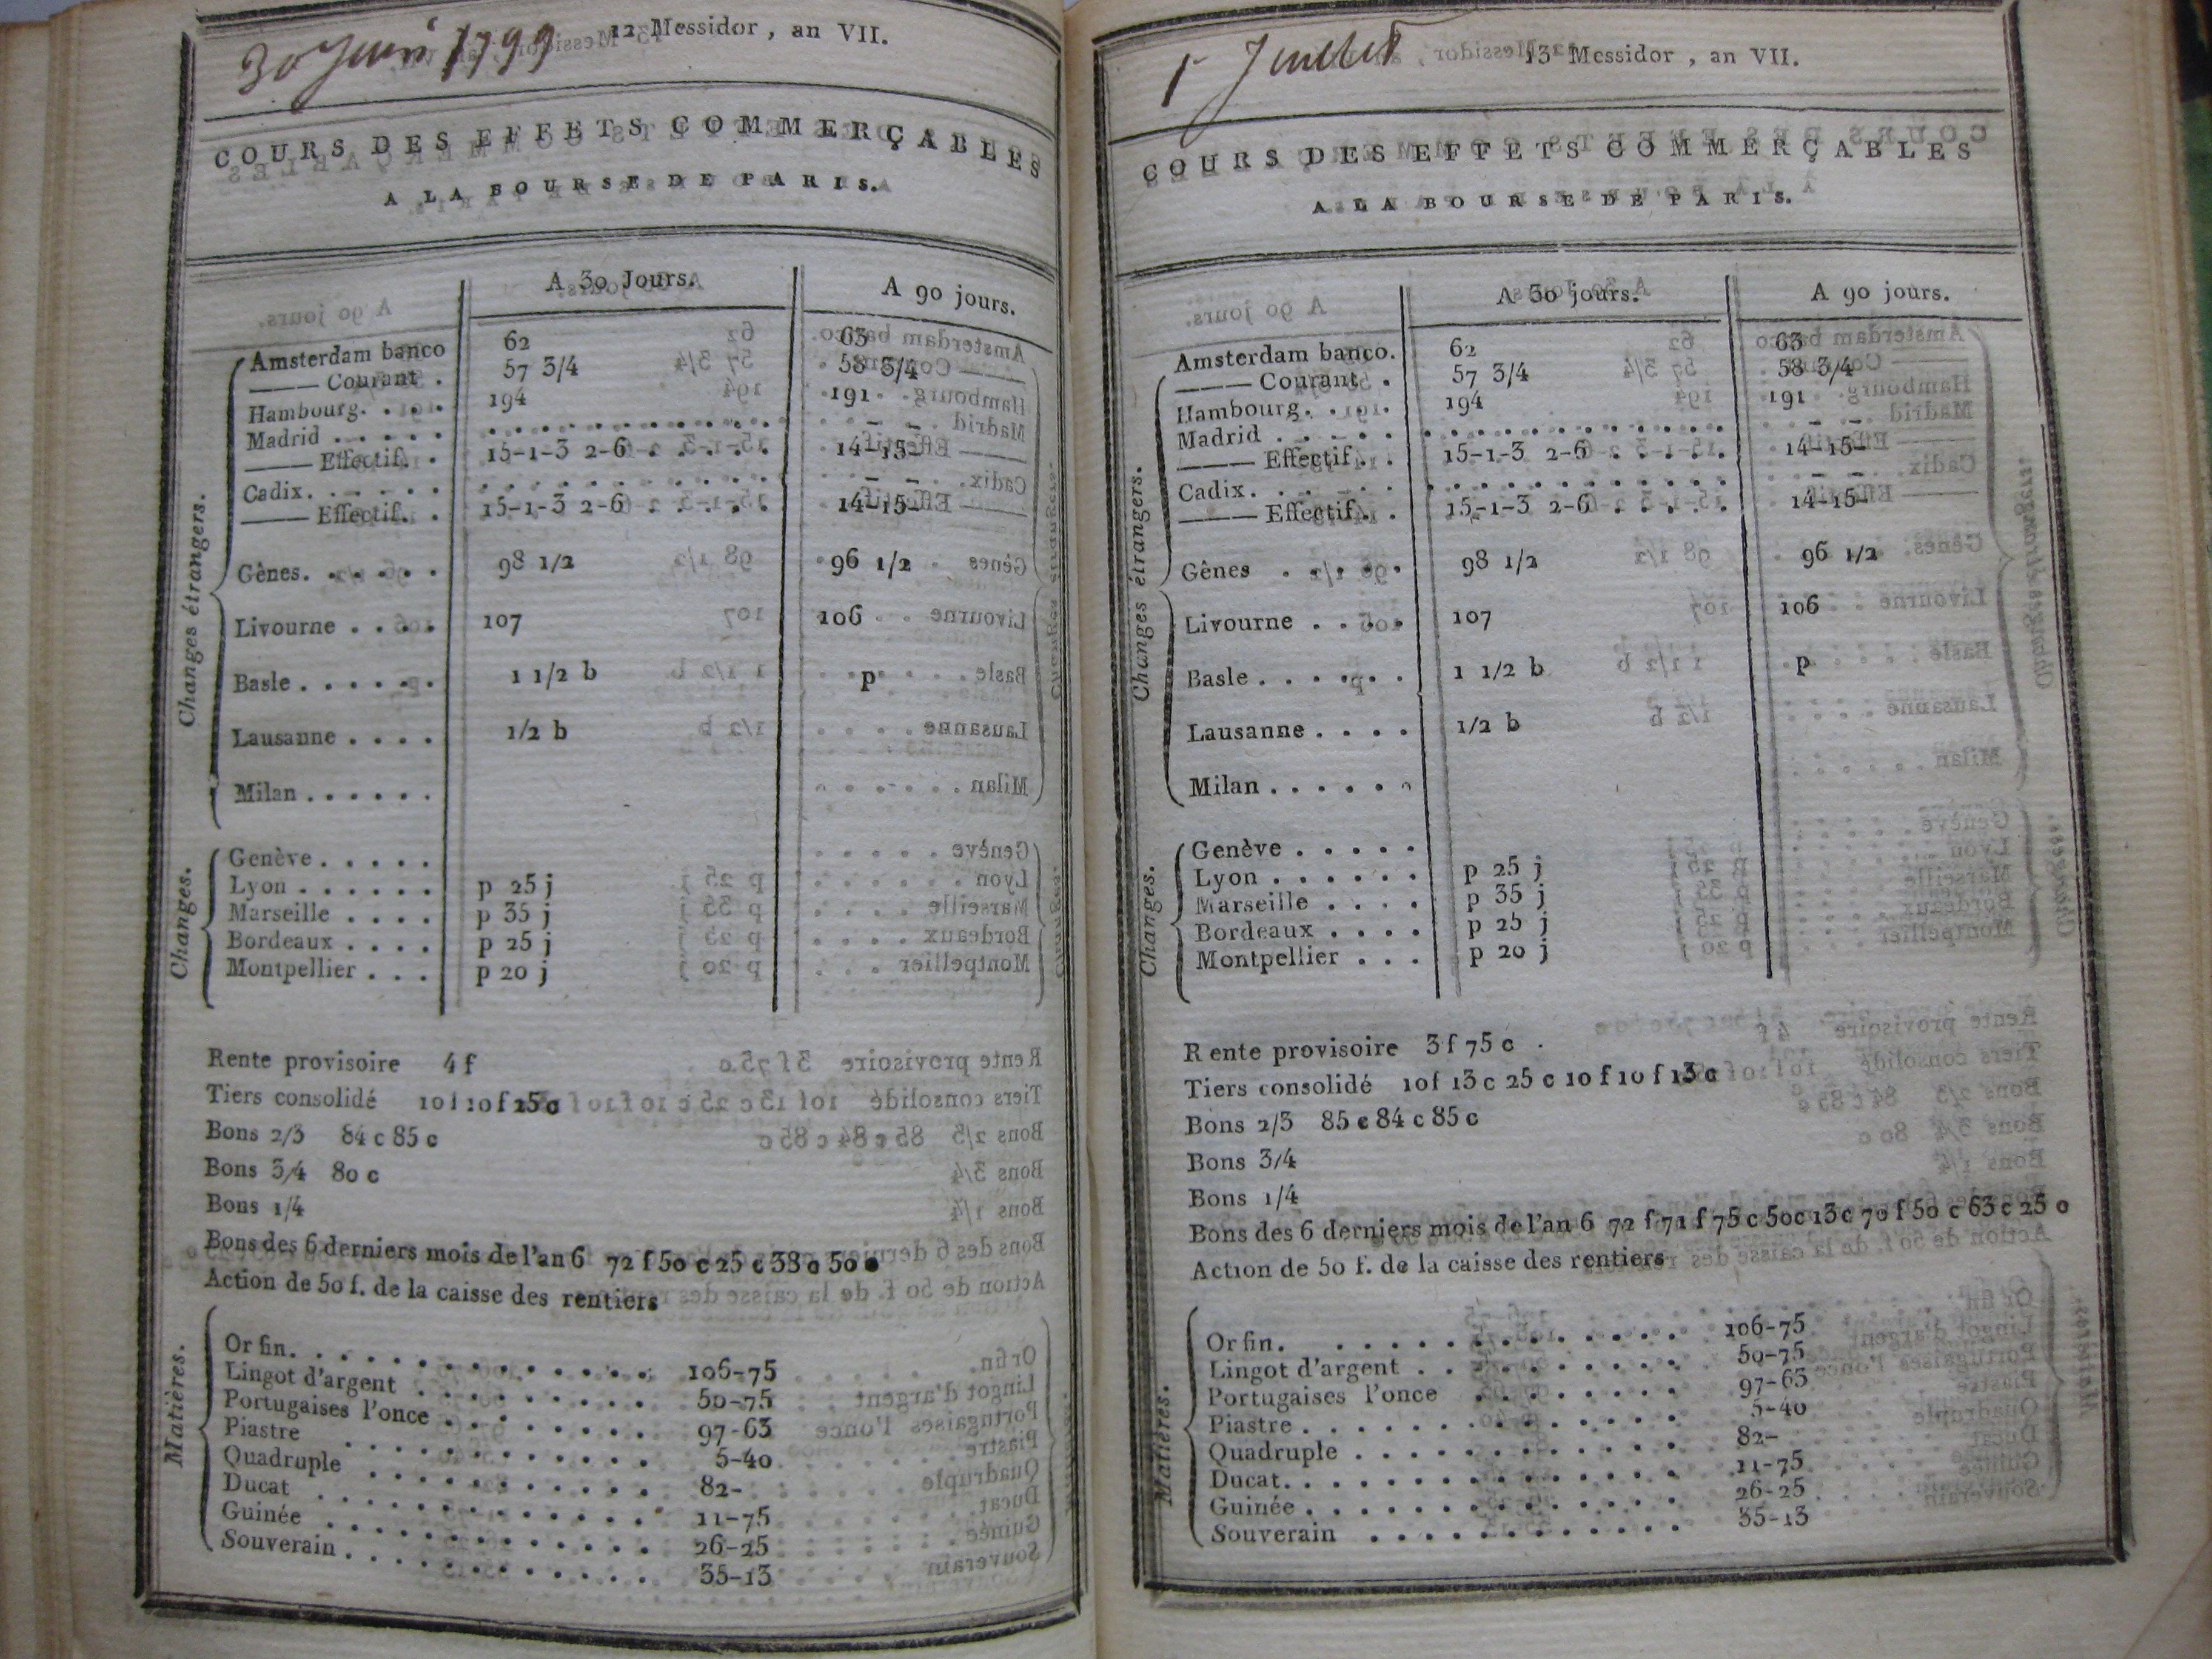 30 Juin 1799
12 Messidor, an VII.
COURS DES EFFETS COMMERÇABLES
A LA BOURSE DE PARIS.
A 30 Jours. A 90 jours.
Changes étrangers.
Amsterdam banco 62 63
——— Courant . 57 3/4 58 3/4
Hambourg. . . . 194 191
Madrid . . . . . . . . . . . . . . . . . . . – –
——— Effectif. . 15-1-3 2-6 . . . . . 14-15-
Cadix. . . . . . . . . . . . . . . . . . . – –
——— Effectif. . 15-1-3 2-6 . . . . . 14-15-
Gênes. . . . . . 98 1/2 96 1/2
Livourne . . . . 107 106
Basle . . . . . . 1 1/2 b p
Lausanne . . . . 1/2 b
Milan . . . . . .
Changes.
Genève . . . . .
Lyon . . . . . . p 25 j
Marseille . . . . p 35 j
Bordeaux . . . . p 25 j
Montpellier . . . p 20 j
Rente provisoire 4 f
Tiers consolidé 10 f 10 f 25 c
Bons 2/3 84 c 85 c
Bons 3/4 80 c
Bons 1/4
Bons des 6 derniers mois de l'an 6 72 f 50 c 25 c 38 c 50 c
Action de 50 f. de la caisse des rentiers
Matières.
Or fin. . . . . . . . . . . . . . 106-75
Lingot d'argent . . . . . . . . . 50-75
Portugaises l'once . . . . . . . . 97-63
Piastre . . . . . . . . . . . . 5-40
Quadruple . . . . . . . . . . . 82-
Ducat . . . . . . . . . . . . . 11-75
Guinée . . . . . . . . . . . . . 26-25
Souverain . . . . . . . . . . . . 35-13
1er Juillet
13 Messidor, an VII.
COURS DES EFFETS COMMERÇABLES
A LA BOURSE DE PARIS.
A 30 jours. A 90 jours.
Changes étrangers.
Amsterdam banco. 62 63
——— Courant . 57 3/4 58 3/4
Hambourg. . . . 194 191
Madrid . . . . . . . . . . . . . . . . . . . – –
——— Effectif. . 15-1-3 2-6 . . . . . 14-15-
Cadix. . . . . . . . . . . . . . . . . . . – –
——— Effectif. . 15-1-3 2-6 . . . . . 14-15-
Gênes . . . . . 98 1/2 96 1/2
Livourne . . . . 107 106
Basle . . . . . . 1 1/2 b p
Lausanne . . . . 1/2 b
Milan . . . . . .
Changes.
Genève . . . . .
Lyon . . . . . . p 25 j
Marseille . . . . p 35 j
Bordeaux . . . . p 25 j
Montpellier . . . p 20 j
Rente provisoire 3 f 75 c .
Tiers consolidé 10f 13 c 25 c 10 f 10 f 13 c
Bons 2/3 85 c 84 c 85 c
Bons 3/4
Bons 1/4
Bons des 6 derniers mois de l'an 6 72 f 71 f 75 c 50c 13 c 70 f 50 c 63 c 25 c
Action de 50 f. de la caisse des rentiers
Matières.
Or fin. . . . . . . . . . . . . . 106-75
Lingot d'argent . . . . . . . . . . 50-75
Portugaises l'once . . . . . . . . 97-63
Piastre . . . . . . . . . . . . . 5-40
Quadruple . . . . . . . . . . . . 82-
Ducat. . . . . . . . . . . . . . 11-75
Guinée . . . . . . . . . . . . . 26-25
Souverain . . . . . . . . . . . 35-13